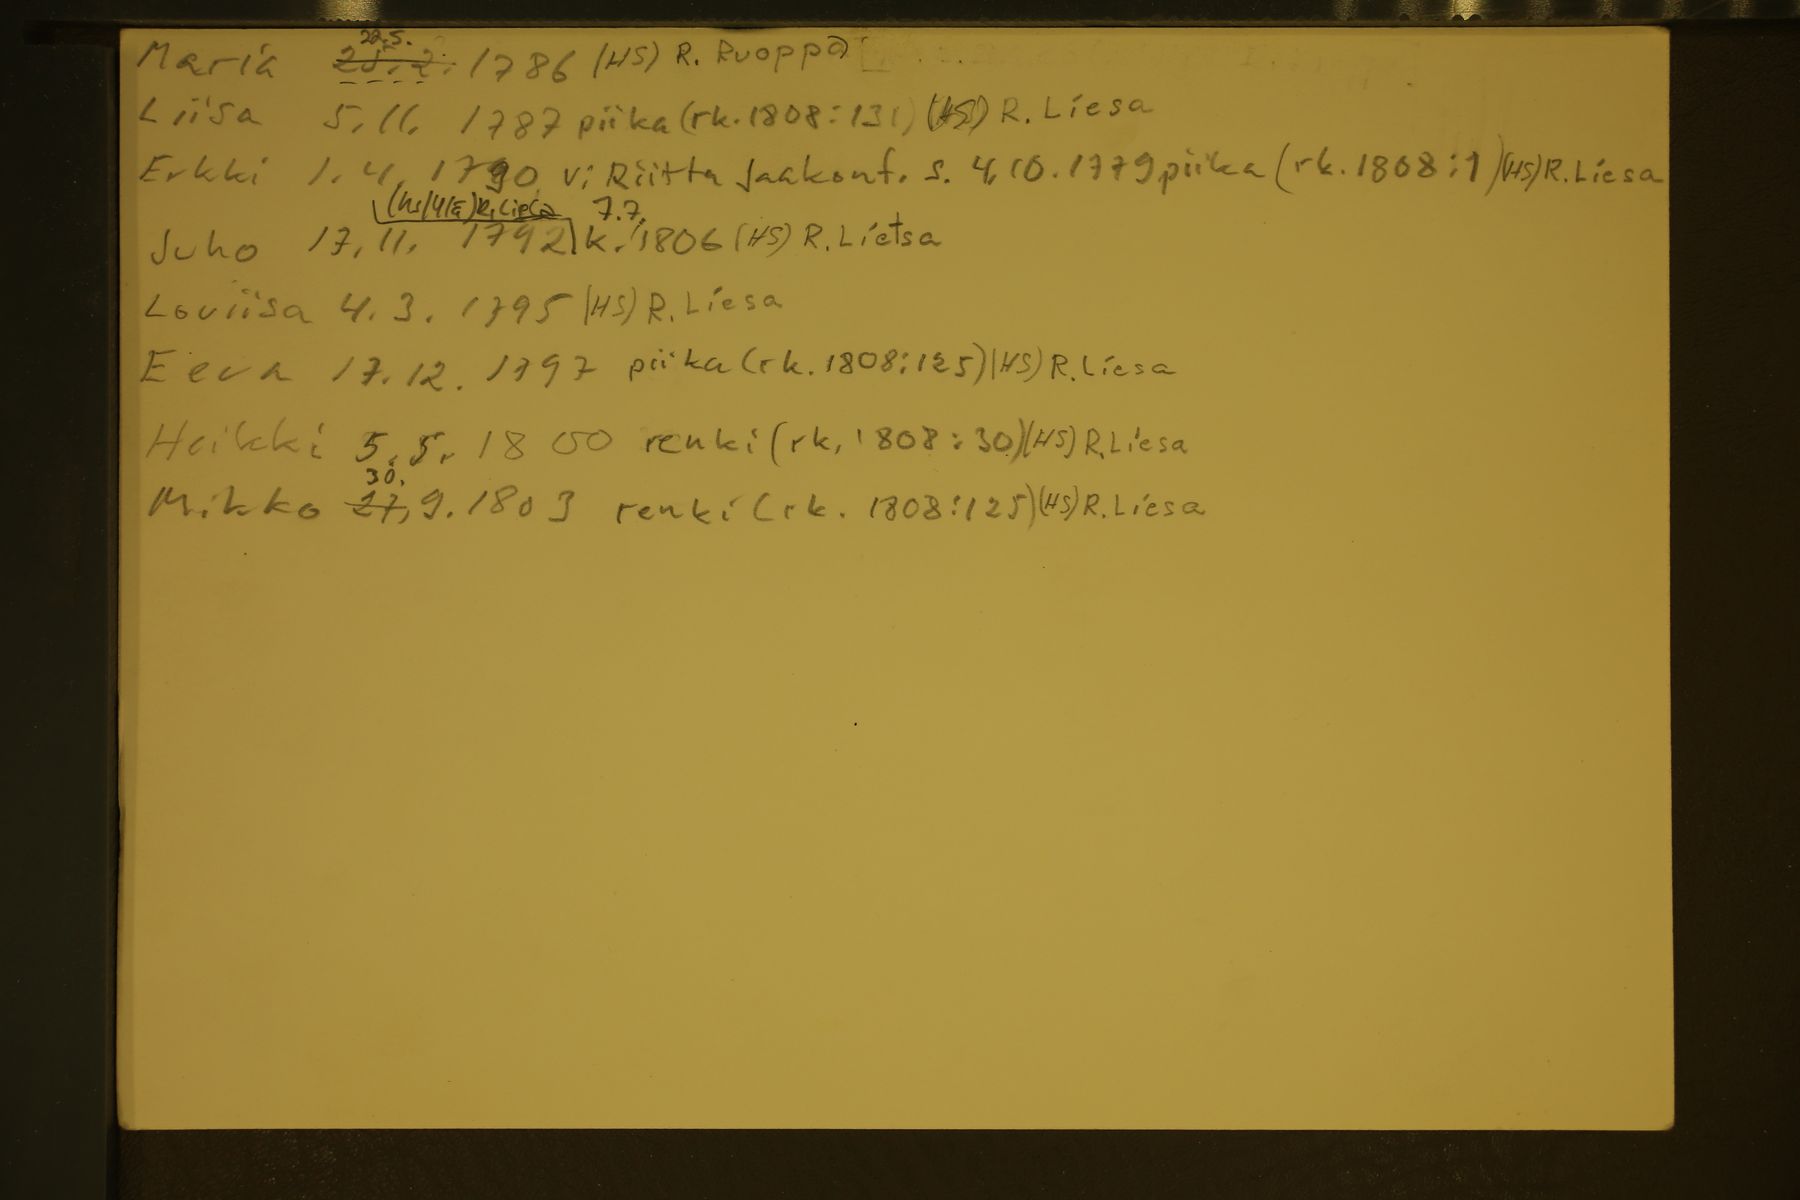 22.5.
Maria 28.2. 1786 (HS) R. Ruoppa
Liisa 5.11. 1787 piika (rk. 1808:131) (HS) R. Liesa
Erkki 1.4. 1790 v; Riitta Jaakont. s. 4.10.1779 piika (rk. 1808:1) (HS) R. Liesa
R. Liesa 7.7.
Juho 17.11. 1792 k. 1806 (HS) R. Lietsa
Loviisa 4.3. 1795 (HS) R. Liesa
Eeva 17.12. 1797 piika (rk. 1808:125) (HS) R. Liesa
Heikki 5.5. 1800 renki (rk. 1808:30) (HS) R. Liesa
30.
Mikko 27.9.1803 renki (rk. 1808:125) (HS) R. Liesa